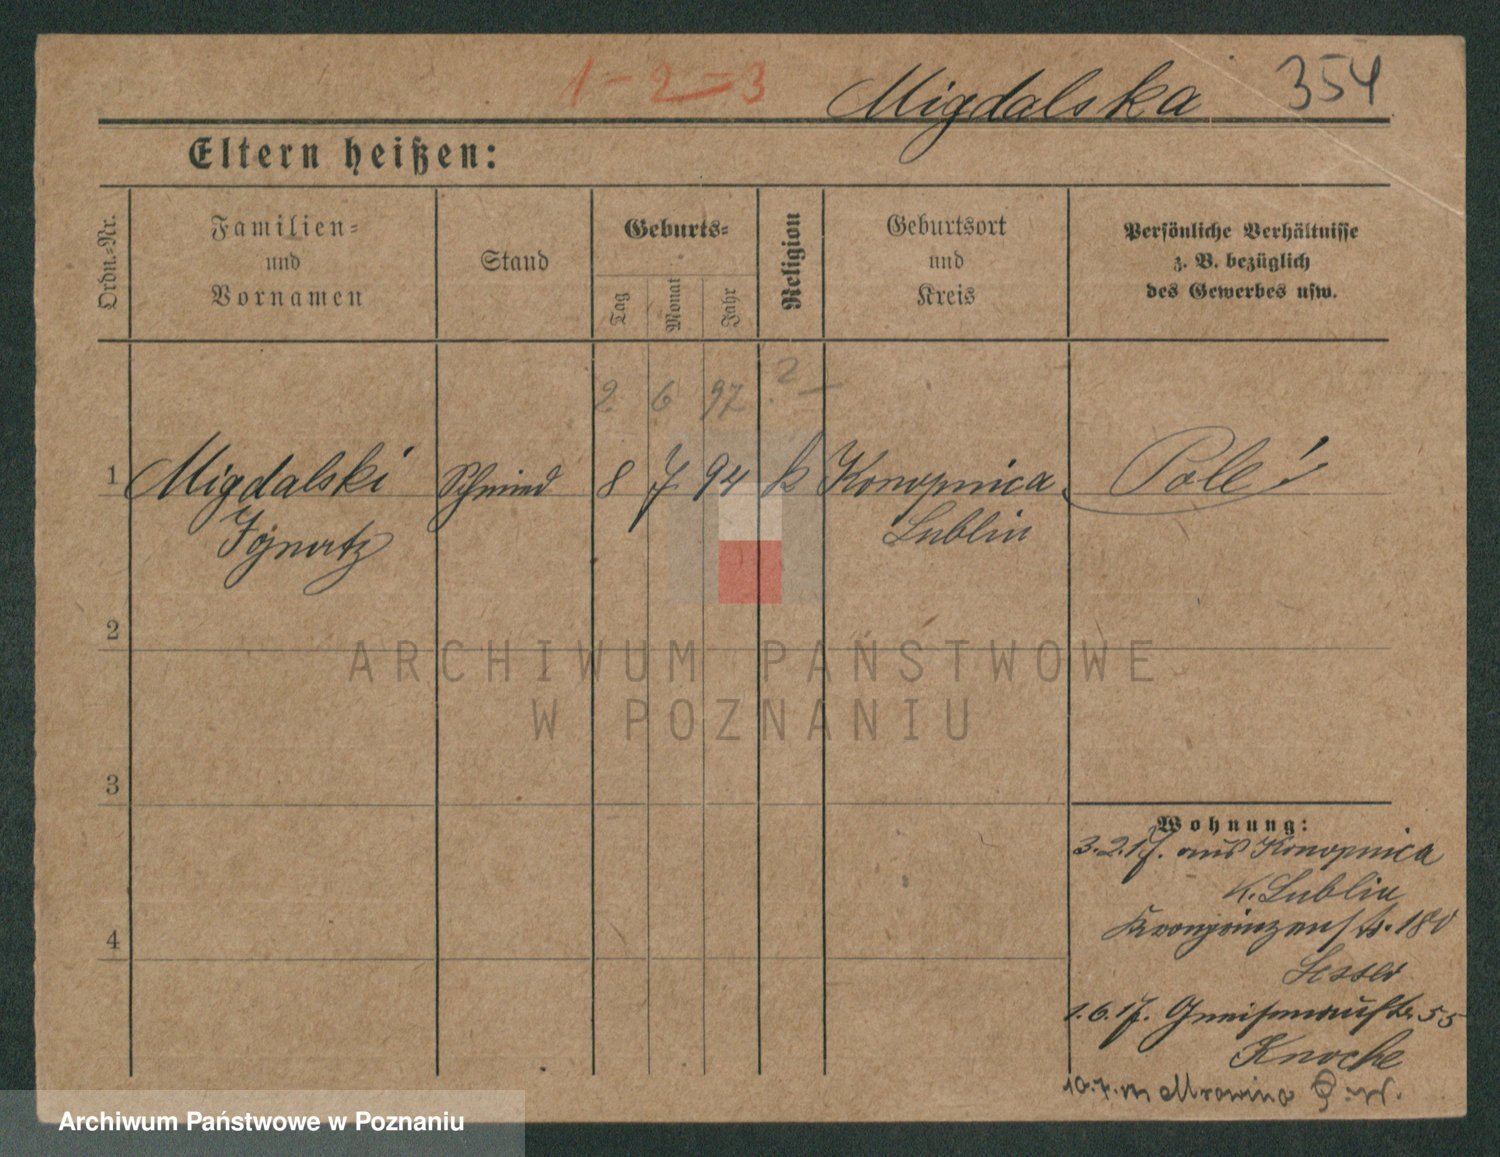 1 - 2 = 3
Migdalska 354
Eltern heißen:
Ordn.-Nr.
Familien-
und
Vornamen
Stand
Geburts-
Tag
Monat
Jahr
Religion
Geburtsort
und
Kreis
Persönliche Verhältnisse
z. B. bezüglich
des Gewerbes usw.
2 6 97 ? -
1 Migdalski Schmied 8 7 94 k Konopnica Pole
Ignatz Lublin
2
3
4
ARCHIWUM PAŃSTWOWE
W POZNANIU
Wohnung:
3.2.17. aus Konopnica
K. Lublin
Kronprinzenstr. 180
Lesser
1.6.17. Gneisenaustr. 55
Knoche
10.7. Mrowino P.W.
Archiwum Państwowe w Poznaniu